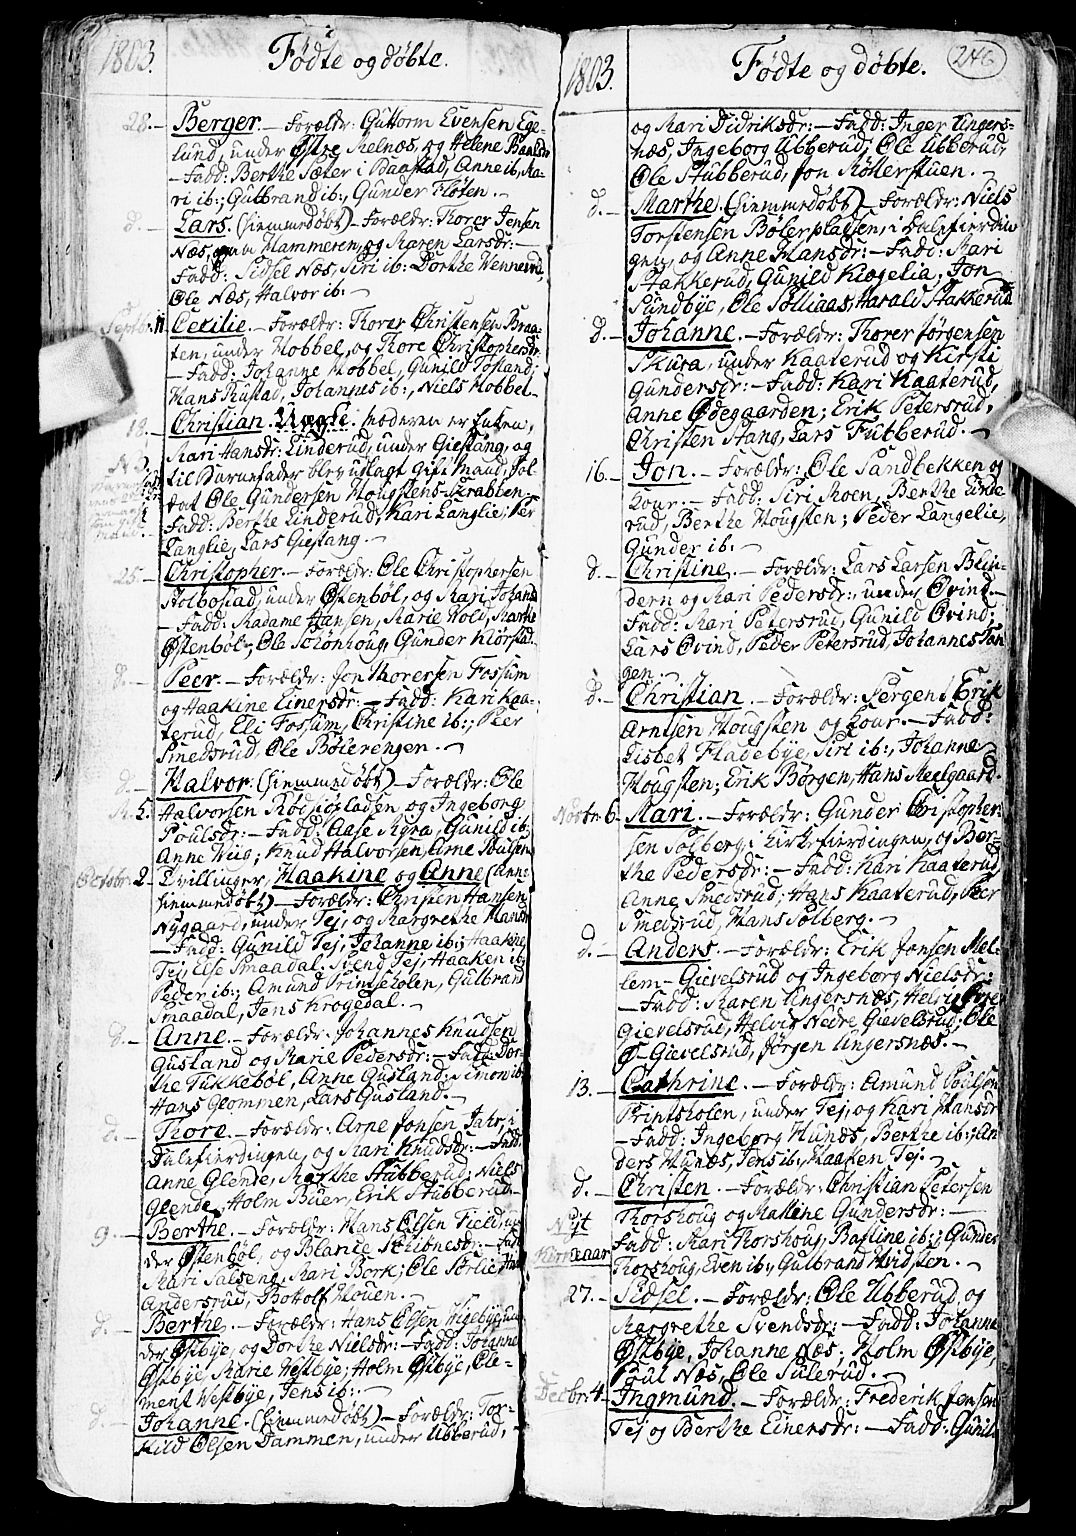 1803.
Fødte og døbte.
28. Berger. — Forældr: Guttorm Evensen Ege-
lund, under Østre Melnæs, og Helene Paalsdr
— Fadd: Berthe Sæter i Baastad, Anne ib, Ma-
ri ib.; Gulbrand ib:, Gunder Fløten. —
d. — Lars. (hiemmedøbt) — Forældr: Thorer Jensen
Næs, Hammeren, og Maren Larsdr: —
Fadd: Sidsel Næs, Siri ib: Dorthe Wennevold,
Ole Næs, Halvor ib: —
Septbr. 11 Cecilie. — Forældr: Thorer Christensen Braa-
ten, under Hobbel, og Thore Christophersdr
— Fadd: Johanne Hobbel, Gunild Tosland;
Hans Rustad, Johannes ib:, Niels Hobbel —
18. — Christian. Uægte. Moderen er Enken,
Mari Hansdr: Linderud, under Giestang, og
til Barnefader blev udlagt gift Mand, Sol-
dat Ole Gundersen Hougstens-Skrabben.
Fadd: Berthe Linderud, Kari Langlie; Per
Langlie, Lars Giestang. —
25. — Christopher. — Forældr: Ole Christophersen
Molbostad, under Østenbøl, og Mari Johans
— Fadd: Madame Hansen, Marie Vold, Marthe
Østenbøl; Ole Schønhoug, Gunder Mørstad
d. — Peer. — Forældr: Jon Thorersen Fossum
og Haakine Einersdr: — Fadd: Kari Kaa-
terud, Eli Fossum, Christine ib:; Peer
Smedsrud, Ole Böierengen. —
d. — Halvor. (hiemmedøbt) — Forældr: Ole
Halvorsen Rødsiøpladsen og Ingeborg
Poulsdr: — Fadd: Aase Myra, Gunild ib:
Anne Wiig; Knud Halvorsen, Arne Poulsen
Octobr: 2 Tvillinger, Haakine og Anne (Anne
hiemmedøbt) — Forældr: Christen Hansen
Nygaard, under Tej, og Margrethe Hansdr
— Fadd: Gunild Tej, Johanne ib:; Haakine
Tej, Else Smaadal; Svend Tej, Haaken ib:
Peder ib:; Amund Printsholen, Gulbrand
Smaadal, Jens Krogedal. —
d. — Anne. — Forældr: Johannes Knudsen
Gusland og Marie Pedersdr: — Fadd: Dor-
the Tukkebøl, Anne Gusland; Simon ib:
Hans Glommen, Lars Gusland. —
d. — Thore. — Forældr: Arne Jonsen Jahr, i
Dulefierdingen, og Mari Knudsdr: — Fadd:
Anne Glende, Marthe Stubberud; Niels
Glende, Holm Buer, Erik Stubberud —
9. — Berthe. — Forældr: Hans Olsen Field, un-
der Østenbøl, og Blancie Schiønesdr: — Fadd
Mari Salseng, Mari Bork; Ole Sørlie, Hans
Andersrud, Bottolf Mouen. —
d. — Berthe. — Forældr: Hans Olsen Wigebye, un-
der Østbye, og Dorthe Nielsdr: — Fadd: Johanne
Østbye, Marie Westbye; Holm Østbye, Cle-
ment Vestbye, Jens ib: —
d. — Johanne. (hiemmedøbt) — Forældr: Tor-
kild Olsen Dammen, under Ubberud,
1803.
Fødte og døbte.
246
og Mari Didriksdr: — Fadd: Inger Ungers-
næs, Ingeborg Ubberud; Ole Ubberud,
Ole Stubberud, Jon Møllerstuen. —
d. — Marthe. (hiemmedøbt) — Forældr: Niels
Torstensen Bølerpladsen, i Dulefierdin
gen, og Anne Hansdr: — Fadd: Mari
Stakkerud, Gunild Kiogelia; Jon
Sundbye, Ole Solliaas, Harald Stakkerud
d. — Johanne. — Forældr: Thorer Jørgensen
Skura, under Kaaterud og Kirsti
Gundersdr: — Fadd: Kari Kaaterud,
Anne Ødegaarden; Erik Petersrud,
Christen Stang, Lars Fubberud. —
16. — Jon. — Forældr: Ole Sandbekken og
Hour. — Fadd: Siri Moen, Berthe Linde
rud, Berthe Hougsten; Peder Langelie,
Gunder ib: —
d. — Christine. — Forældr: Lars Larsen Blin-
dern og Mari Pedersdr:, under Øvind. —
Fadd: Mari Petersrud, Gunild Øvind;
Lars Øvind, Peder Petersrud, Johannes Tan
gen. —
d. — Christian. — Forældr: Sergent Erik
Arntsen Hougsten og Hour. — Fadd:
Lisbet Fladebye, Siri ib:, Johanne
Hougsten; Erik Börgen, Hans Meelgaard.
Novbr: 6 Mari. — Forældr: Gunder Christopher-
sen Solberg i Kirkefierdingen, og Ber-
the Pedersdr: — Fadd: Kari Kaaterud,
Anne Smedsrud; Hans Kaaterud, Peer
Smedsrud, Hans Solberg. —
d. — Anders. — Forældr: Erik Jonsen Mel-
lem-Gievelsrud og Ingeborg Nielsdr:
— Fadd: Maren Ungersnæs, Helvig Øvre
Gievelsrud, Helvig Nedre Gievelsrud; Ole
Ø-Gievelsrud, Jørgen Ungersnæs. —
13. — Cathrine. — Forældr: Amund Poulsen
Printsholen, under Tej, og Kari Hansdr
— Fadd: Ingeborg Hunæs, Berthe ib:; An
ders Hunæs, Jens ib:, Haaken Tej. —
d. — Christen. — Forældr: Christian Petersen
Thorshoug og Malene Gundersdr: —
Nyt
Kirkeaar
Fadd: Mari Thorshoug, Basline ib:; Gunder
Thorshoug, Even ib:, Gulbrand Hvidsten. —
27. — Sidsel. — Forældr: Ole Ubberud og
Margrethe Svendsdr: — Fadd: Johanne
Østbye, Johanne Næs; Holm Østbye,
Poul Næs, Ole Sulerud. —
Decbr: 4 — Ingmund. — Forældr: Frederik Jensen
Tej og Berthe Einersdr: — Fadd: Gunil-